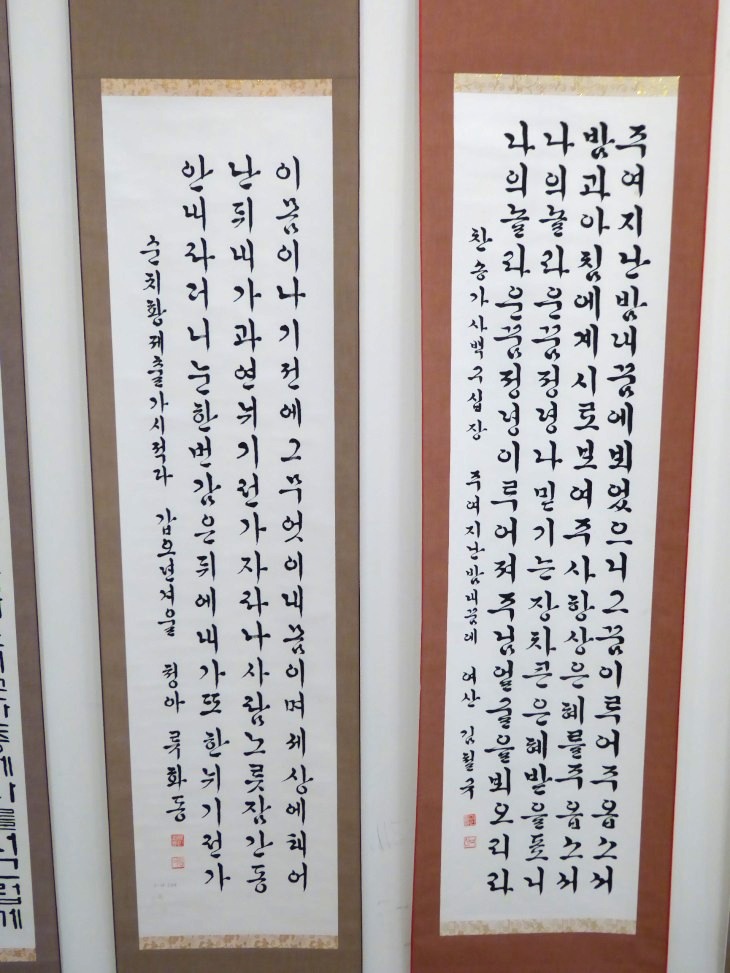 주여지난밤내꿈에뵈었으니그꿈이루어주옵소서
밤과아침에계시로보여주사항상은혜를주옵소서
나의놀라운꿈정녕나믿기는장차큰은혜받을표니
나의놀라운꿈정녕이루어져주님얼굴을뵈오리라
찬송가사백구십장 주여지난밤내꿈에 여산 김필국
이몸이나기전에그무엇이내몸이며세상에태어
난뒤내가과연뉘기런가자라나사람노릇잠간동
안내라러니눈한번감은뒤에내가또한뉘기런가
순치황제출가시적다 갑오년겨울 청아 류화동